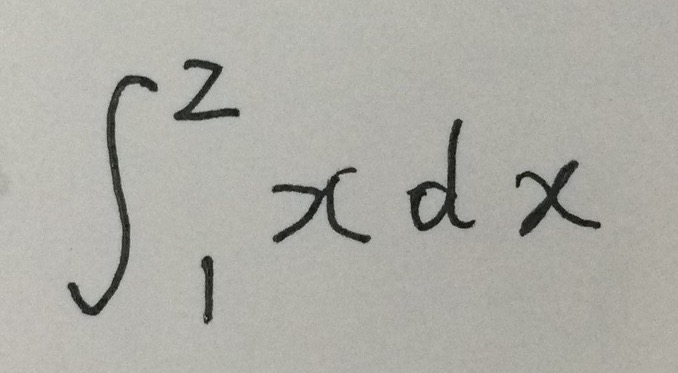 ∫₁² x dx